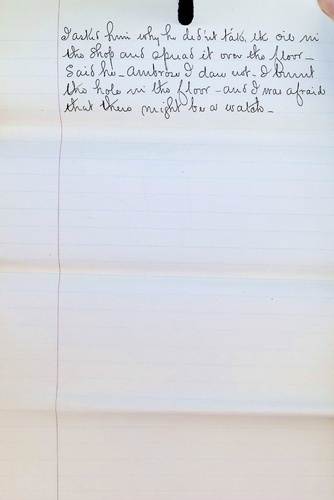 I asked him why he did'nt take the oil in
the Shop and spread it over the floor –
Said he – Ambrose I dare not – I burnt
the hole in the floor – and I was afraid
that there might be a watch –